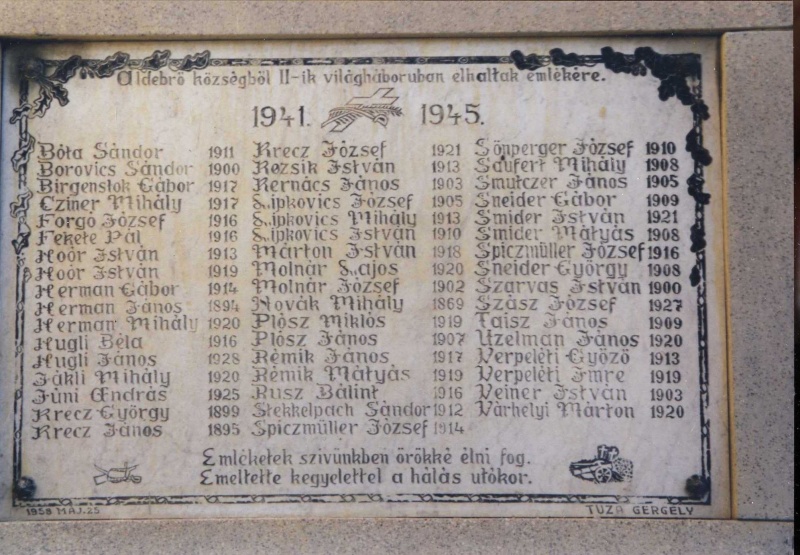 Aldebrő községből II-ik világháboruban elhaltak emlékére.
1941. 1945.
Bóta Sándor 1911
Borovics Sándor 1900
Birgenstok Gábor 1917
Cziner Mihály 1917
Forgó József 1916
Fekete Pál 1916
Hoór István 1913
Hoór István 1919
Herman Gábor 1914
Herman János 1894
Herman Mihály 1920
Hugli Béla 1916
Hugli János 1928
Jákli Mihály 1920
Juni András 1925
Krecz György 1899
Krecz János 1895
Krecz József 1921
Kozsik István 1913
Kernács János 1903
Lipkovics József 1905
Lipkovics Mihály 1913
Lipkovics István 1910
Márton István 1918
Molnár Lajos 1920
Molnár József 1902
Novák Mihály 1869
Plósz Miklós 1919
Plósz János 1907
Rémik János 1917
Rémik Mátyás 1919
Rusz Bálint 1916
Stekkelpach Sándor 1912
Spiczmüller József 1914
Sönperger József 1910
Saufert Mihály 1908
Smutczer János 1905
Sneider Gábor 1909
Smider István 1921
Smider Mátyás 1908
Spiczmüller József 1916
Sneider György 1908
Szarvas István 1900
Szász József 1927
Taisz János 1909
Uzelman János 1920
Verpeléti Győző 1913
Verpeléti Imre 1919
Veiner István 1903
Várhelyi Márton 1920
Emléketek szivünkben örökké élni fog.
Emeltette kegyelettel a hálás utókor.
1958 MÁJ. 25
TUZA GERGELY